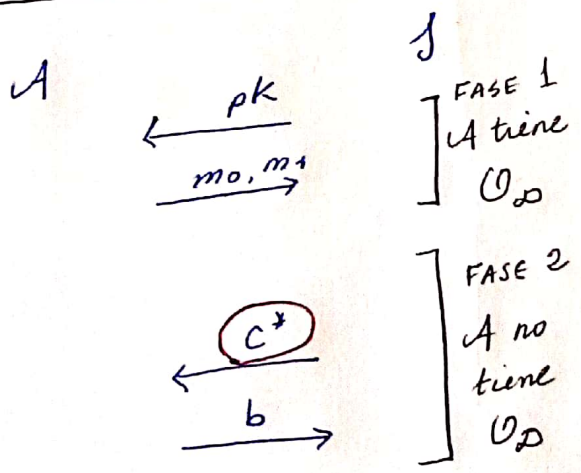 A
S
pk
m0, m1
FASE 1
A tiene
O_D
FASE 2
c*
A no
tiene
b
O_D